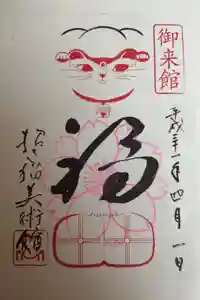 御来館
平成三十一年四月一日
福
招猫美術館